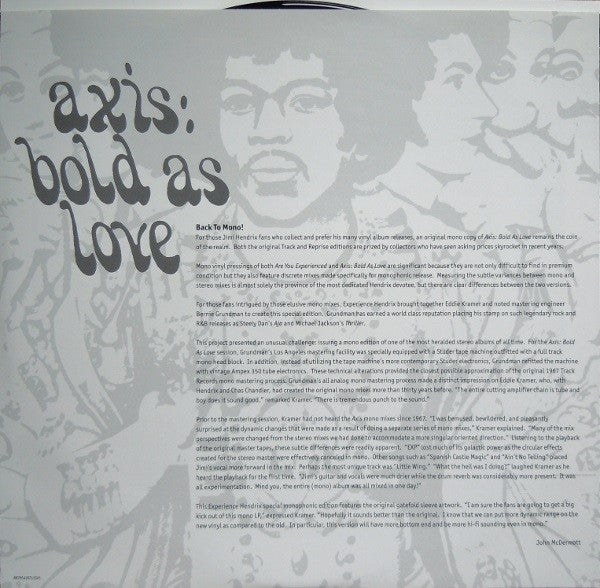 axis:
bold as
love
Back To Mono!
For those Jimi Hendrix fans who collect and prefer his many vinyl album releases, an original mono copy of Axis: Bold As Love remains the coin
of the realm. Both the original Track and Reprise editions are prized by collectors who have seen asking prices skyrocket in recent years.
Mono vinyl pressings of both Are You Experienced and Axis: Bold As Love are significant because they are not only difficult to find in premium
condition but they also feature discrete mixes made specifically for monophonic release. Measuring the subtle variances between mono and
stereo mixes is almost solely the province of the most dedicated Hendrix devotee, but there are clear differences between the two versions.
For those fans intrigued by those elusive mono mixes, Experience Hendrix brought together Eddie Kramer and noted mastering engineer
Bernie Grundman to create this special edition. Grundman has earned a world class reputation placing his stamp on such legendary rock and
R&B releases as Steely Dan's Aja and Michael Jackson's Thriller.
This project presented an unusual challenge: issuing a mono edition of one of the most heralded stereo albums of all time. For the Axis: Bold
As Love session, Grundman's Los Angeles mastering facility was specially equipped with a Studer tape machine outfitted with a full track
mono head block. In addition, instead of utilizing the tape machine's more contemporary Studer electronics, Grundman refitted the machine
with vintage Ampex 350 tube electronics. These technical alterations provided the closest possible approximation of the original 1967 Track
Records mono mastering process. Grundman's all analog mono mastering process made a distinct impression on Eddie Kramer, who, with
Hendrix and Chas Chandler, had created the original mono mixes more than thirty years before. "The entire cutting amplifier chain is tube and
boy does it sound good," remarked Kramer. "There is tremendous punch to the sound."
Prior to the mastering session, Kramer had not heard the Axis mono mixes since 1967. "I was bemused, bewildered, and pleasantly
surprised at the dynamic changes that were made as a result of doing a separate series of mono mixes," Kramer explained. "Many of the mix
perspectives were changed from the stereo mixes we had done to accommodate a more singular oriented direction." Listening to the playback
of the original master tapes, these subtle differences were readily apparent. "EXP" lost much of its galactic power as the circular effects
created for the stereo master were effectively canceled in mono. Other songs such as "Spanish Castle Magic" and "Ain't No Telling" placed
Jimi's vocal more forward in the mix. Perhaps the most unique track was "Little Wing." "What the hell was I doing?" laughed Kramer as he
heard the playback for the first time. "Jimi's guitar and vocals were much drier while the drum reverb was considerably more present. It was
all experimentation. Mind you, the entire (mono) album was all mixed in one day!"
This Experience Hendrix special monophonic edition features the original gatefold sleeve artwork. "I am sure the fans are going to get a big
kick out of this mono LP," expressed Kramer. "Hopefully it sounds better than the original. I know that we can put more dynamic range on the
new vinyl as compared to the old. In particular, this version will have more bottom end and be more hi-fi sounding even in mono."
John McDermott